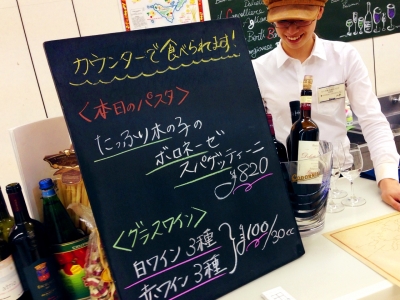 カウンターで食べられます!
<本日のパスタ>
たっぷり木の子の
ボロネーゼ
スパゲッティーニ
¥820
<グラスワイン>
白ワイン3種
赤ワイン3種
}¥100/30cc